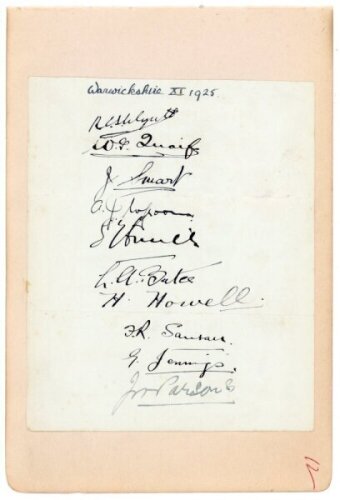 Warwickshire XI 1925.
R.E.S. Wyatt
W.G. Quaife
J Smart
L.A. Bates
H. Howell.
F.R. Santall.
G. Jennings.
Jno Parsons
12